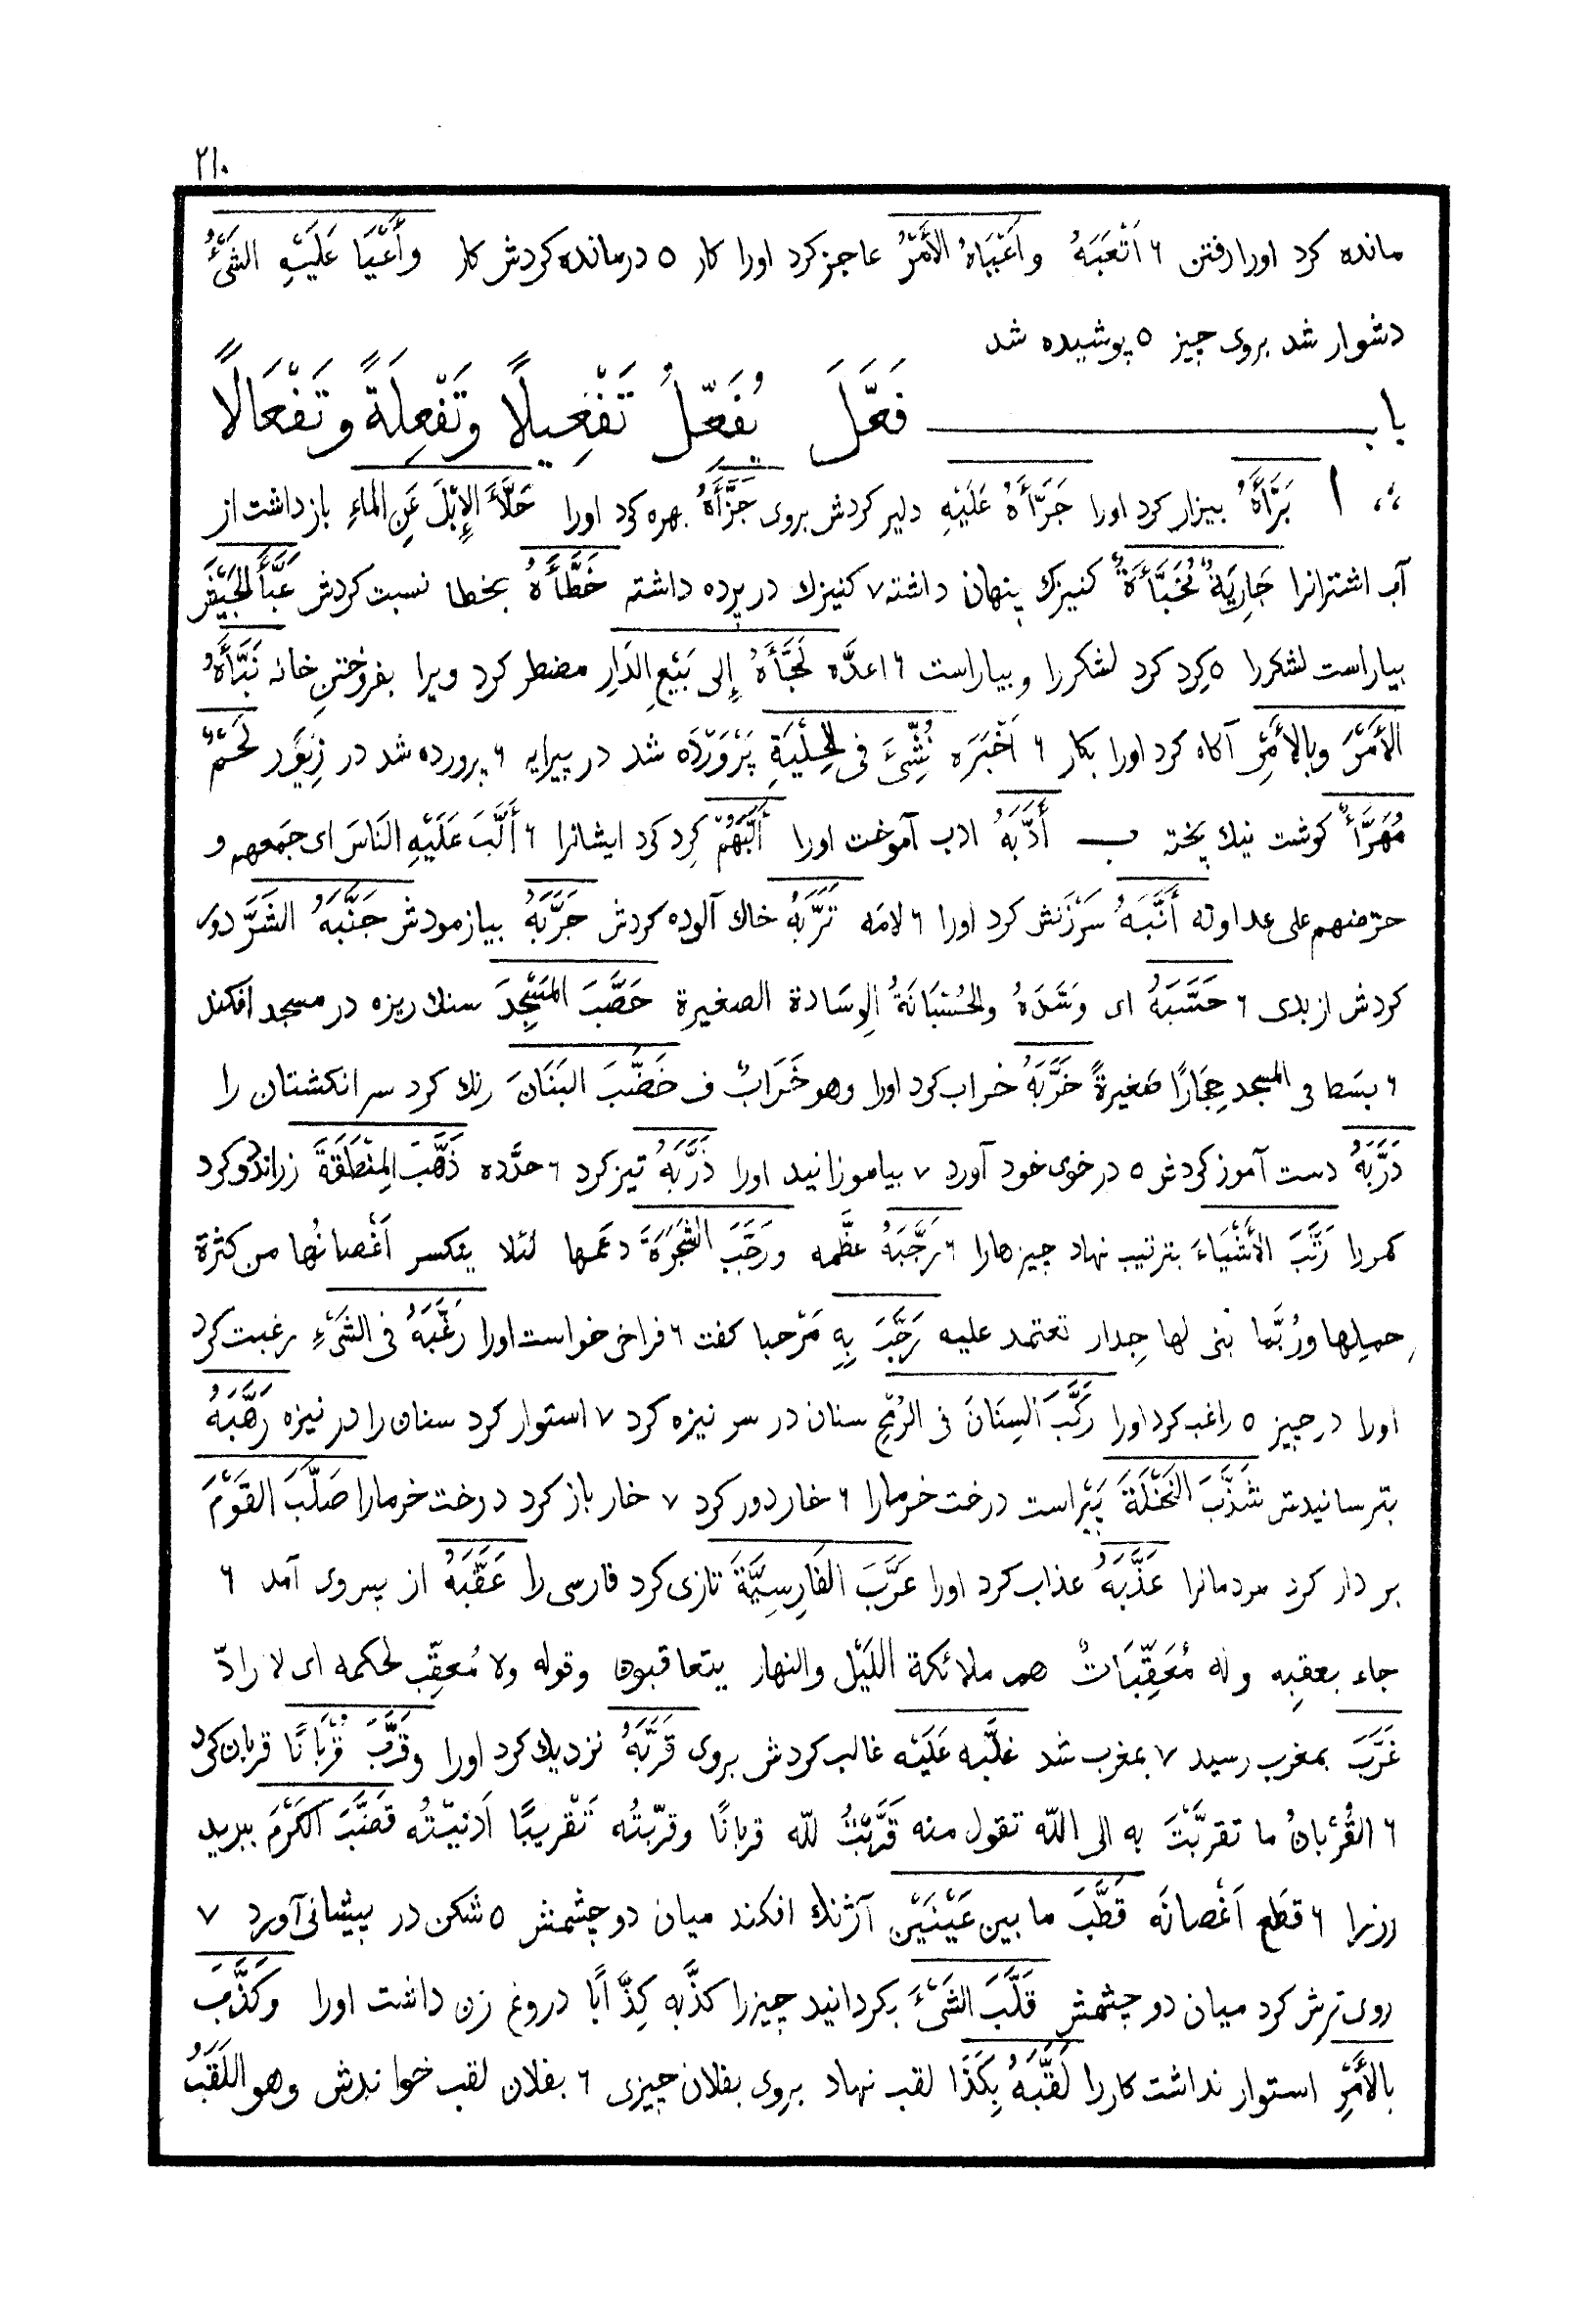 ٢١٠
مانده كرد اورا رفتن ٦ اَتْعَبَهُ وأَعْيَاهُ الأَمْرُ عاجز كرد اورا كار ٥ درمانده كردش كار وأَعْيَا عَلَيْهِ الشَىْءُ
دشوار شد بروى چيز ٥ پوشيده شد
باب فَعَّلَ يُفَعِّلُ تَفْعِيلًا وتَفْعِلَةً وتَفْعَالًا
ا بَرَّأَهُ بيزار كرد اورا جَرَّأَهُ عَلَيْهِ دلير كردش بروى جَزَّأَهُ بهره كرد اورا حَلَّأَ الإِبْلَ عَنِ المَاءِ باز داشت از
آب اشترانرا جَارِيَةٌ مُخَبَّأَةٌ كنيزك پنهان داشته ٧ كنيزك در پرده داشته خَطَّأَهُ بخطا نسبت كردش عَبَّأَ الجَيْشَ
بياراست لشكررا ٥ كِرد كرد لشكررا وبياراست ٦ اعدَّه لَجَّأَهُ إِلى بَيْعِ الدَارِ مضطر كرد ويرا بفروختنِ خانه نَبَّأَهُ
الأَمْرَ وبالأَمْرِ آكاه كرد اورا بكار ٦ اَخْبَرَه نُشِّئَ فى الحِلْيَةِ پَرْوَرْدَه شد در پيرايه ٦ پرورده شد در زِيوَر لَحْمٌ
مُهَرَّأٌ كوشت نيك پخته ب أَدَّبَهُ ادب آموخت اورا أَلَّبَهُمْ كِرد كرد ايشانرا ٦ أَلَّبَ عَلَيْهِ النَاسَ اى جمعهم و
حرّضهم على عداوته أَنَّبَهُ سَرْزَنش كرد اورا ٦ لامَه تَرَّبَهُ خاك آلوده كردش جَرَّبَهُ بيازمودش جَنَّبَهُ الشَرَّ دور
كردش از بدى ٦ حَسَّبَهُ اى وَسَّدَهُ والحُسْبَانَةُ الوِسَادة الصغيرة حَصَّبَ المَسْجِدَ سنك ريزه در مسجد افكند
٦ بسَط فى المسجد حِجَارًا صَغيرةً خَرَّبَهُ خراب كرد اورا وهو خَرَابٌ ف خَضَّبَ البَنَانَ رنك كرد سر انكشتان را
دَرَّبَهُ دست آموز كردش ٥ در خوى خود آورد ٧ بياموزانيد اورا ذَرَّبَهُ تيز كرد ٦ حدَّده ذَهَّبَ المِنْطَقَةَ زراندود كرد
كمررا رَتَّبَ الأَشْيَاءَ بترتيب نهاد چيزهارا ٦ رَجَّبَهُ عظَّمه ورَجَّبَ الشَجَرَةَ دعَمها لئلا ينكسر اَغْصانُها من كثرة
حِملها ورُبَّما بنى لها جِدار تعتمد عليه رَحَّبَ بِهِ مَرْحبا كفت ٦ فراخى خواست اورا رَغَّبَهُ فى الشَىْءِ رغبت كرد
اورا در چيز ٥ راغب كرد اورا رَكَّبَ السِنَانَ فى الرُمْحِ سنان در سر نيزه كرد ٧ استوار كرد سنان را در نيزه رَهَّبَهُ
بترسانيدش شَذَّبَ النَخْلَةَ پَيْراست درخت خرمارا ٦ خار دور كرد ٧ خار باز كرد درخت خرمارا صَلَّبَ القَوْمَ
بر دار كرد مردمانرا عَذَّبَهُ عذاب كرد اورا عَرَّبَ الفَارِسِيَّةَ تازى كرد فارسى را عَقَّبَهُ از پس وى آمد ٦
جاء بعقبِه و له مُعَقِّبَاتٌ هم ملائكة اللَيْل والنهار يتعاقبون وقوله ولا مُعقِّب لحكمه اى لا رادّ
غَرَّبَ بمغرب رسيد ٧ بمغرب شد غلَّبه عَلَيْه غالب كردش بروى قَرَّبَهُ نزديك كرد اورا وقَرَّبَ قُرْبَانًا قربان كرد
٦ القُرْبانُ ما تقرَّبْتَ به الى اللّه تقول منه قَرَّبْتُ للّه قربانًا وقرّبتُه تَقْريبًا اَدنيْتُه قَضَّبَ الكَرْمَ ببريد
رزرا ٦ قطَع اَغْصانَه قَطَّبَ ما بين عَيْنَيْنِ آژنك افكند ميان دو چشمش ٥ شكن در پيشانى آورد ٧
روى ترش كرد ميان دو چشمش قَلَّبَ الشَىْءَ بكردانيد چيزرا كذَّبه كِذَّابًا دروغ زن داشت اورا وكَذَّبَ
بالأَمْرِ استوار نداشت كاررا لَقَّبَهُ بِكَذَا لقب نهاد بروى بفلان چيزى ٦ بفلان لقب خواندش وهو اللَقَبُ